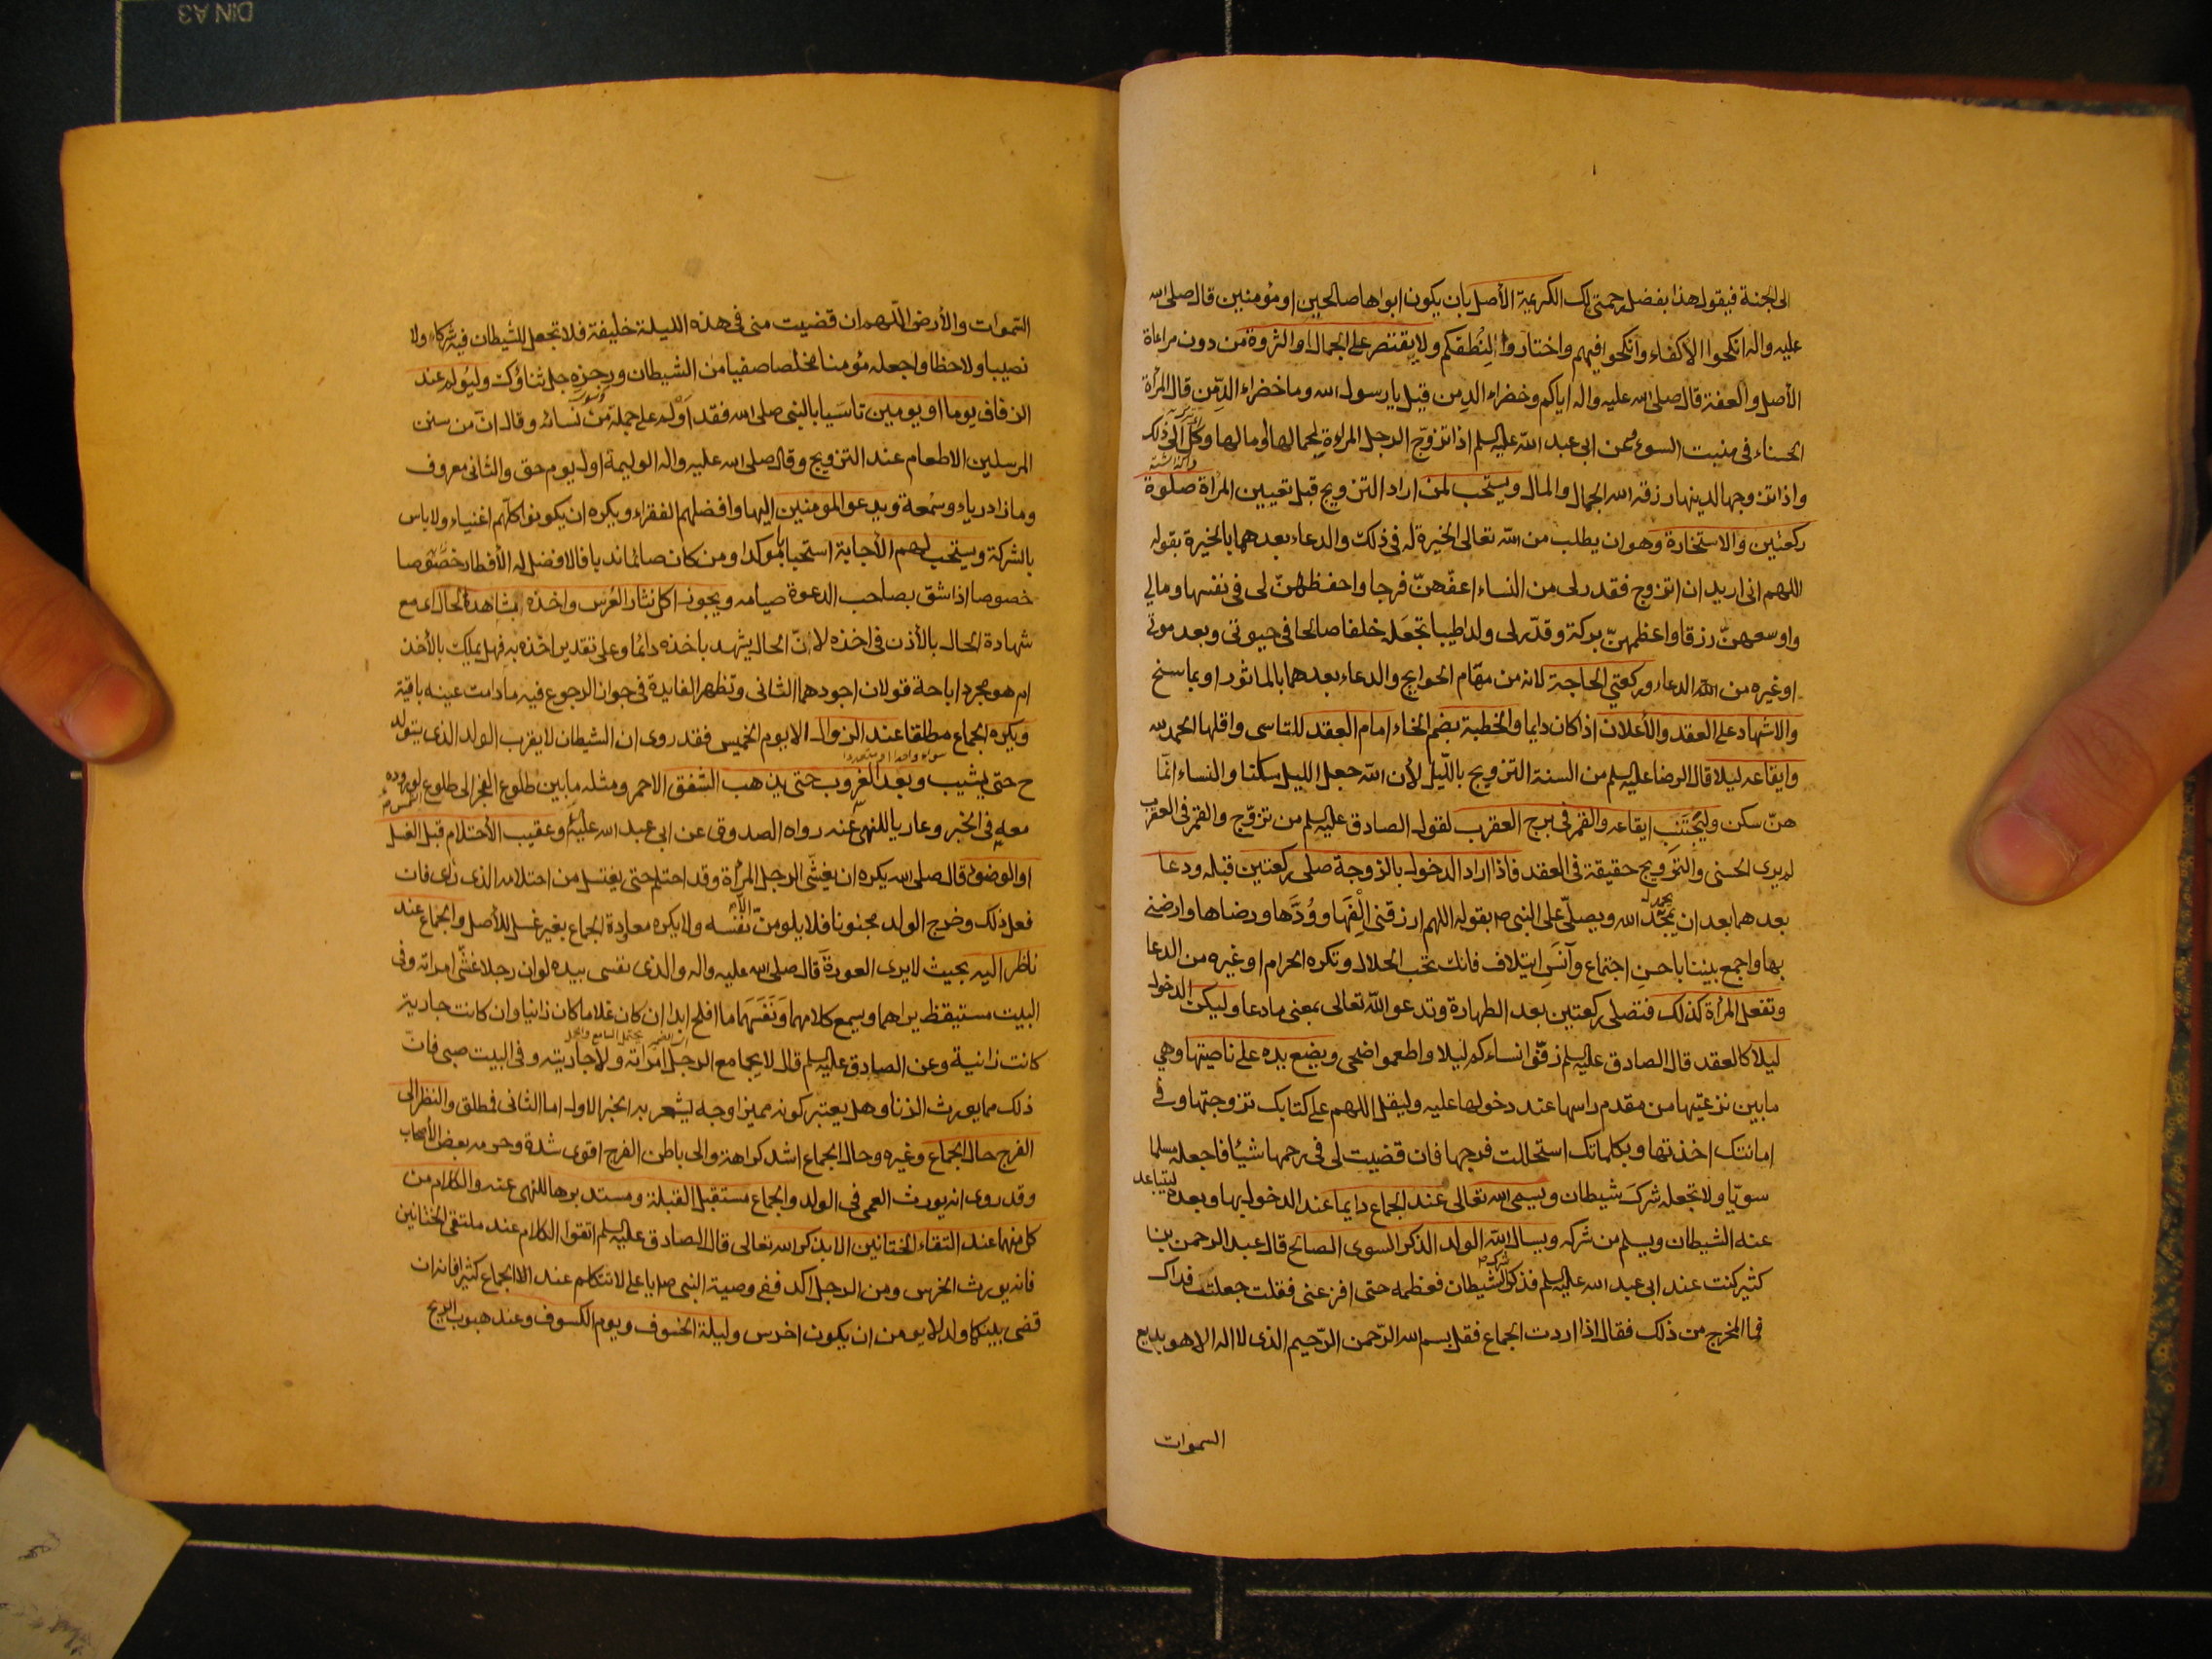 الى الجنة فيقول هذا بفضل رحمتي لك الكريمة الأصل بان يكون ابواها صالحين او مؤمنين قال صلى الله
عليه واله انكحوا الاكفاء وانكحوا فيهم واختاروا لنطفكم ولا يقتصر على الجمال او الثروة من دون مراعاة
الأصل والعفة قال صلى الله عليه واله اياكم وخضراء الدمن قيل يا رسول الله وما خضراء الدمن قال المرأة
الحسناء في منبت السوء وعن ابي عبد الله عليه السلم اذا تزوج الرجل المراءة لجمالها او مالها وكل الى ذلك
واذا تزوجها لدينها رزقه الله الجمال والمال ويستحب لمن اراد التزويج قبل تعيين المرأة صلوة
ركعتين والاستخارة وهو ان يطلب من الله تعالى الخيرة له في ذلك والدعاء بعدهما بالخيرة بقوله
اللهم اني اريد ان اتزوج فقدر لي من النساء اعفهن فرجا واحفظهن لي في نفسها ومالي
واوسعهن رزقا واعظمهن بركة وقدر لي ولدا طيبا تجعله خلفا صالحا في حيوتي وبعد موتي
او غيره من الدعاء وركعتي الحاجة لانه من مهام الحوايج والدعاء بعدهما بالماثور او بما سنح
والاشهاد على العقد والأعلان اذا كان دايما والخطبة بضم الخاء امام العقد للتاسي واقلها الحمد لله
وايقاعه ليلا قال الرضا عليه السلم من السنة التزويج بالليل لأن الله جعل الليل سكنا والنساء انما
هن سكن وليجتنب ايقاعه والقمر في برج العقرب لقول الصادق عليه السلم من تزوج والقمر في العقرب
لم يرى الحسنى والتزويج حقيقة في العقد فاذا اراد الدخول بالزوجة صلى ركعتين قبله ودعا
بعدهما بعد ان يمجد الله ويصلي على النبي ص بقوله اللهم ارزقني الفها وودها ورضاها وارضني
بها واجمع بيننا باحسن اجتماع وآنس ايتلاف فانك تحب الحلال وتكره الحرام او غيره من الدعا
وتفعل المرأة كذلك فتصلي ركعتين بعد الطهارة وتدعو الله تعالى بمعنى ما دعا وليكن الدخول
ليلا كالعقد قال الصادق عليه السلم زفوا نساءكم ليلا واطعموا ضحى ويضع يده على ناصيتها وهي
ما بين نزعتيها من مقدم راسها عند دخولها عليه وليقل اللهم على كتابك تزوجتها وفي
امانتك اخذتها وبكلماتك استحللت فرجها فان قضيت لي في رحمها شيئا فاجعله مسلما
سويا ولا تجعله شرك شيطان ويسمى الله تعالى عند الجماع دايما عند الدخول بها وبعده ليتباعد
عنه الشيطان ويسلم من شركه ويسال الله الولد الذكر السوي الصالح قال عبد الرحمن بن
كثير كنت عند ابي عبد الله عليه السلم فذكر شرك الشيطان فعظمه حتى افزعني فقلت جعلت فداك
فما المخرج من ذلك فقال اذا اردت الجماع فقل بسم الله الرحمن الرحيم الذي لا اله الا هو بديع
السموات
السموات والأرض اللهم ان قضيت مني في هذه الليلة خليفة فلا تجعل للشيطان فيه شركاء ولا
نصيبا ولا حظا واجعله مؤمنا مخلصا صفيا من الشيطان ورجزه جل ثناؤك وليولم عند
الزفاف يوما او يومين تاسيا بالنبي صلى الله فقد اولم على جملة من نسائه وقال ان من سنن
المرسلين الاطعام عند التزويج وقال صلى الله عليه واله الوليمة اول يوم حق والثاني معروف
وما زاد رياء وسمعة ويدعو المومنين اليها وافضلهم الفقراء ويكره ان يكونوا كلهم اغنياء ولا باس
بالشركة ويستحب لهم الأجابة استحبابا موكدا ومن كان صائما ندبا فالافضل له الأفطار خصوصا
خصوصا اذا شق بصاحب الدعوة صيامه ويجوز اكل نثار العرس واخذه بشاهد الحال اي مع
شهادة الحال بالأذن في اخذه لان الحال يشهد باخذه دائما وعلى تقدير اخذه به فهل يملك بالأخذ
ام هو مجرد اباحة قولان اجودهما الثاني وتظهر الفايدة في جواز الرجوع فيه ما دامت عينه باقية
ويكره الجماع مطلقا عند الزوال الا يوم الخميس فقد روى ان الشيطان لا يقرب الولد الذي يتولد
ح حتى يشيب وبعد الغروب حتى يذهب الشفق الاحمر ومثله ما بين طلوع الفجر الى طلوع الشمس لوروده
معه في الخبر وعاريا للنهي عنه رواه الصدوق عن ابي عبد الله عليه وعقيب الأحتلام قبل الغسل
او الوضوء قال صلى الله يكره ان يغشى الرجل المرأة وقد احتلم حتى يغتسل من احتلامه الذي راى فان
فعل ذلك وخرج الولد مجنونا فلا يلومن الا نفسه ولا يكره معاودة الجماع بغير غسل للأصل والجماع عند
ناظر اليه بحيث لا يرى العورة قال صلى الله عليه واله والذي نفسي بيده لو ان رجلا غشى امراته وفي
البيت مستيقظ يراهما ويسمع كلامهما ونفسهما ما افلح ابدا ان كان غلاما كان زانيا وان كانت جارية
كانت زانية وعن الصادق عليه السلم قال لا يجامع الرجل امراته ولا جاريته وفي البيت صبي فان
ذلك مما يورث الزنا وهل يعتبر كونه مميزا وجه يشعر به الخبر الاول اما الثاني فمطلق والنظر الى
الفرج حال الجماع وغيره وحال الجماع اشد كراهة والى باطن الفرج اقوى شدة وحرمه بعض الأصحاب
وقد روى انه يورث العمى في الولد والجماع مستقبل القبلة ومستدبرها للنهي عنه والكلام من
كل منهما عند التقاء الختانين الا بذكر الله تعالى قال الصادق عليه السلم اتقوا الكلام عند ملتقى الختانين
فانه يورث الخرس ومن الرجل اكد ففي وصية النبي ص يا علي لا تتكلم عند الجماع كثيرا فانه ان
قضى بينكما ولد لا يومن ان يكون اخرس وليلة الخسوف ويوم الكسوف وعند هبوب الريح
DIN A3